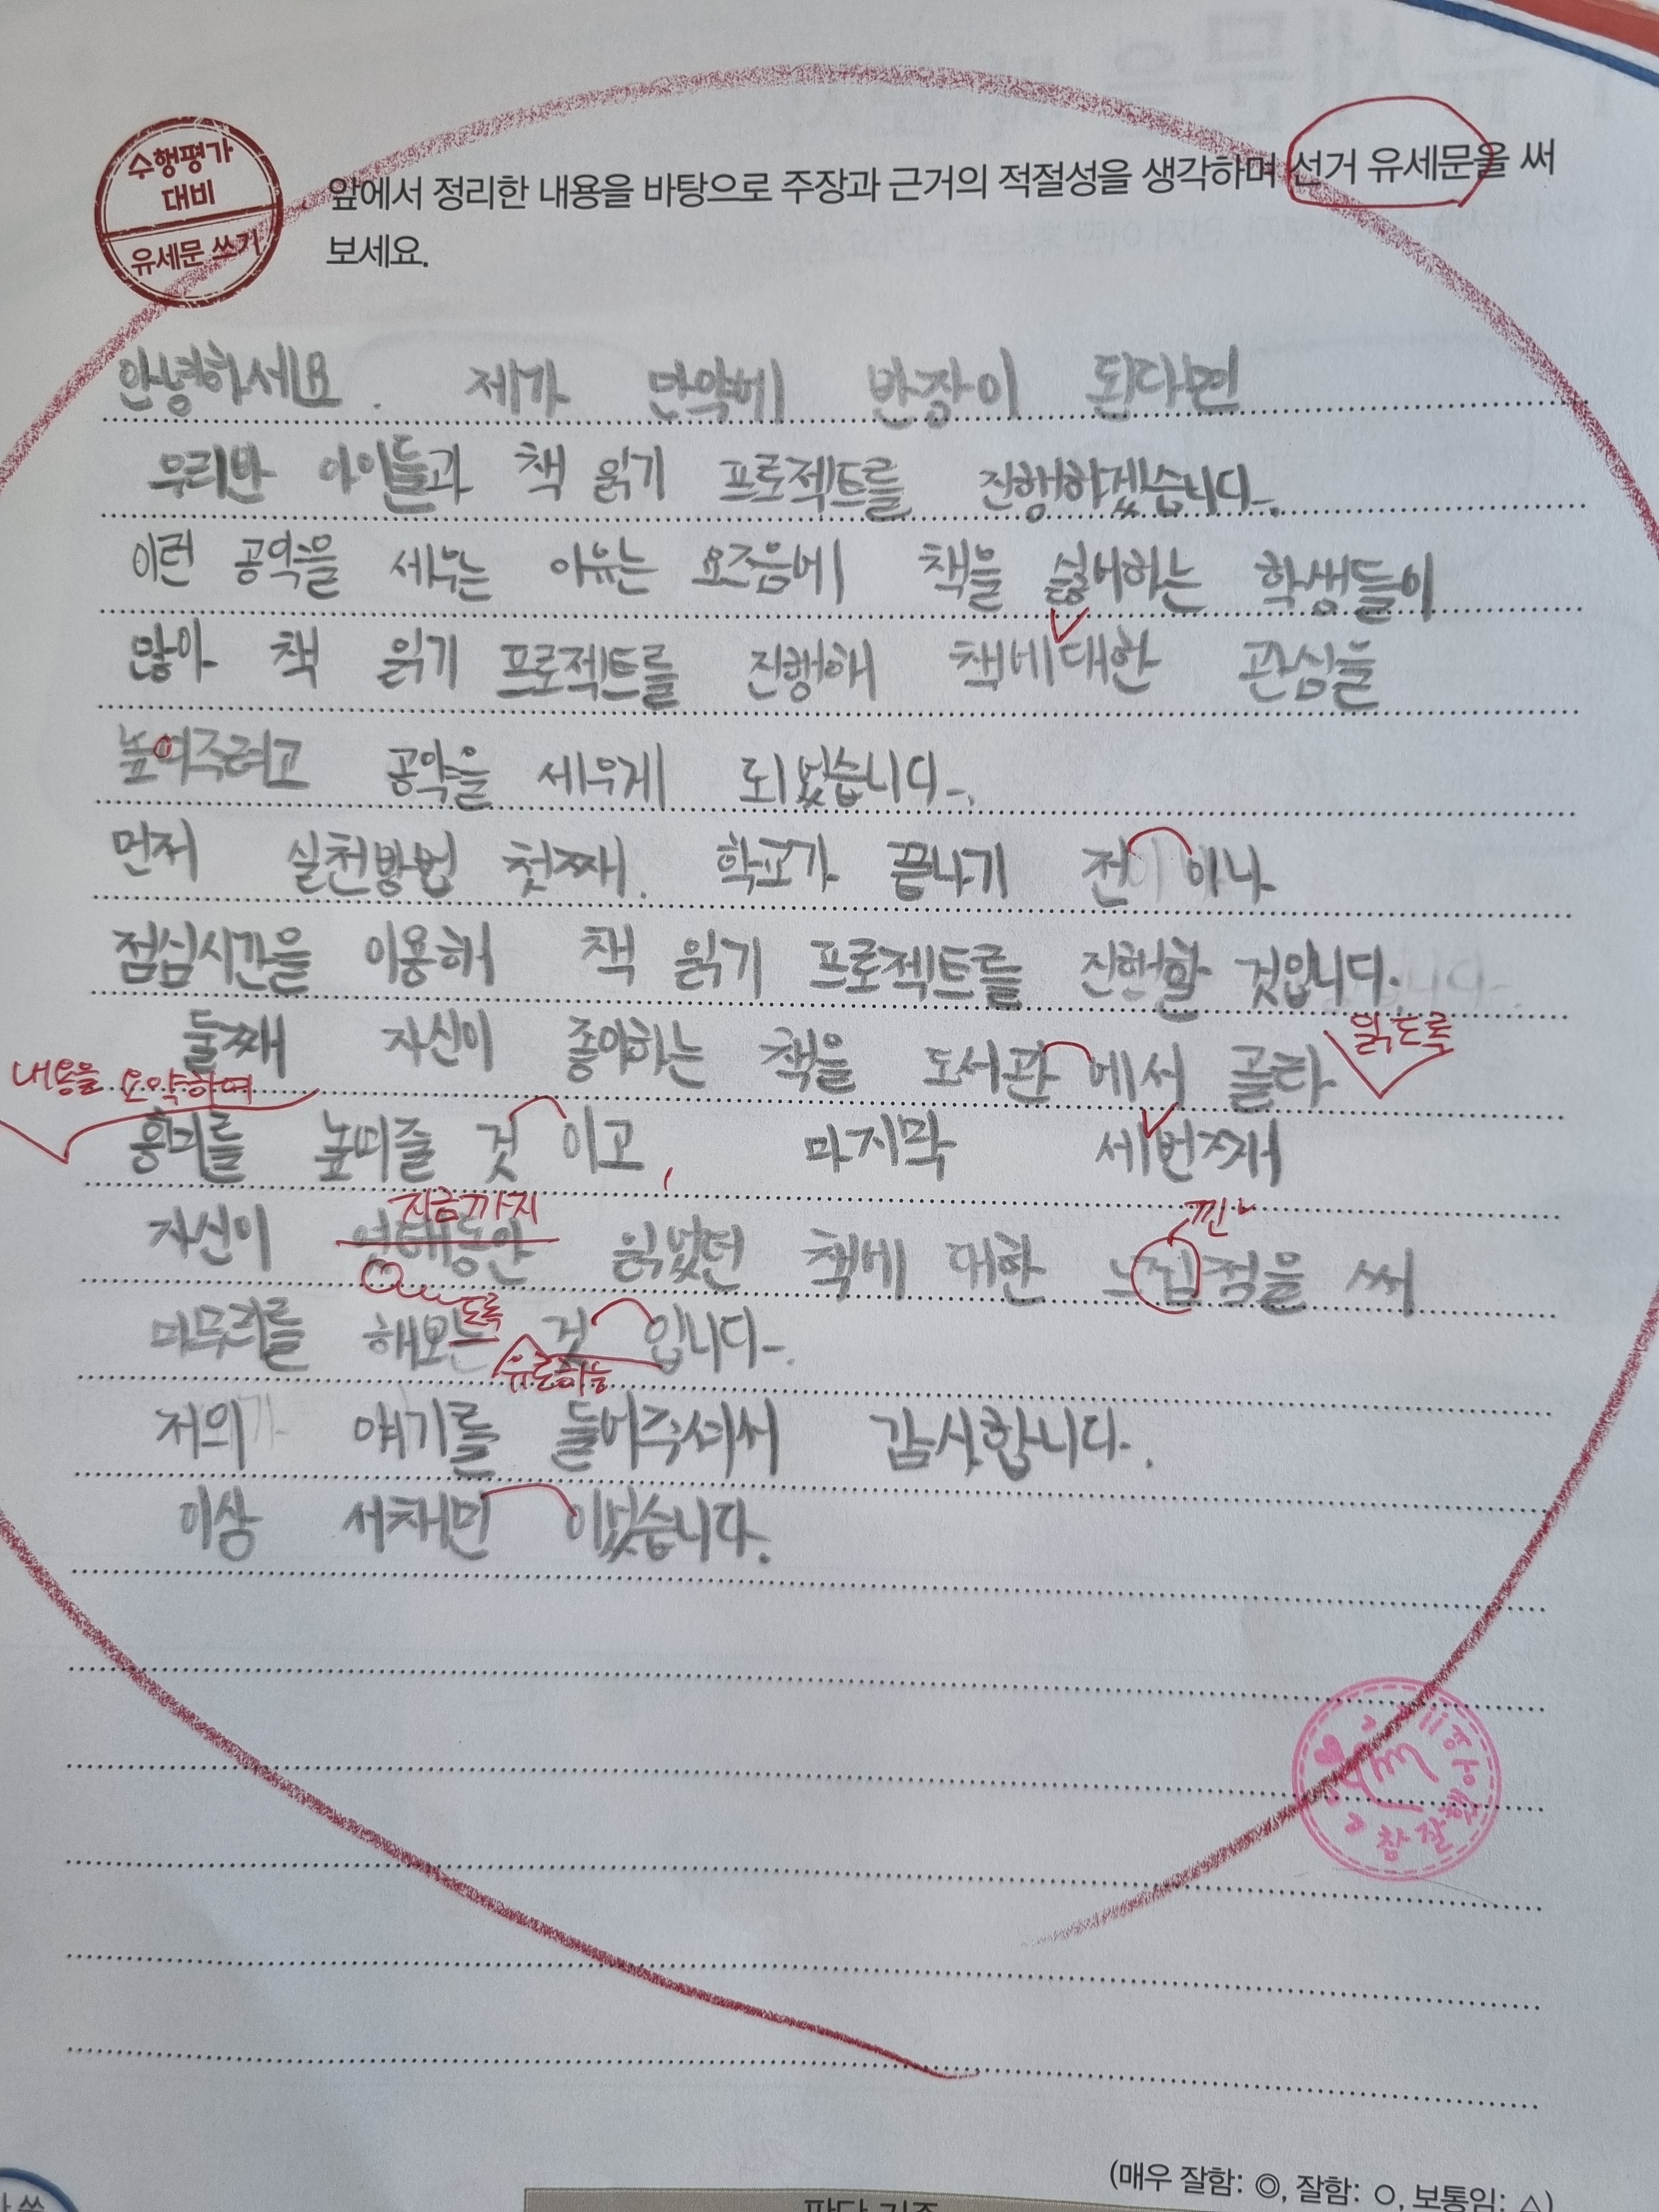 수행평가
대비
유세문 쓰기
앞에서 정리한 내용을 바탕으로 주장과 근거의 적절성을 생각하며 선거 유세문을 써
보세요.
안녕하세요. 제가 만약에 반장이 된다면
우리반 아이들과 책 읽기 프로젝트를 진행하겠습니다.
이런 공약을 세우는 이유는 요즈음에 책을 싫어하는 학생들이
많아 책 읽기 프로젝트를 진행해 책에대한 관심을
높여주려고 공약을 세우게 되었습니다.
먼저 실천방법 첫째. 학교가 끝나기 전 이나
점심시간을 이용해 책 읽기 프로젝트를 진행할 것입니다.
읽도록
둘째 자신이 좋아하는 책을 도서관 에서 골라
내용을 요약하며
흥미를 높여줄 것 이고, 마지막 세번째
지금까지
낀
자신이 읽었던 책에 대한 점을 써
도록
마무리를 해보는 것 입니다.
유도하는
저의 얘기를 들어주셔서 감사합니다.
이상 서채민 이었습니다.
참 잘했어요
(매우 잘함: ◎, 잘함: ○, 보통임: △)